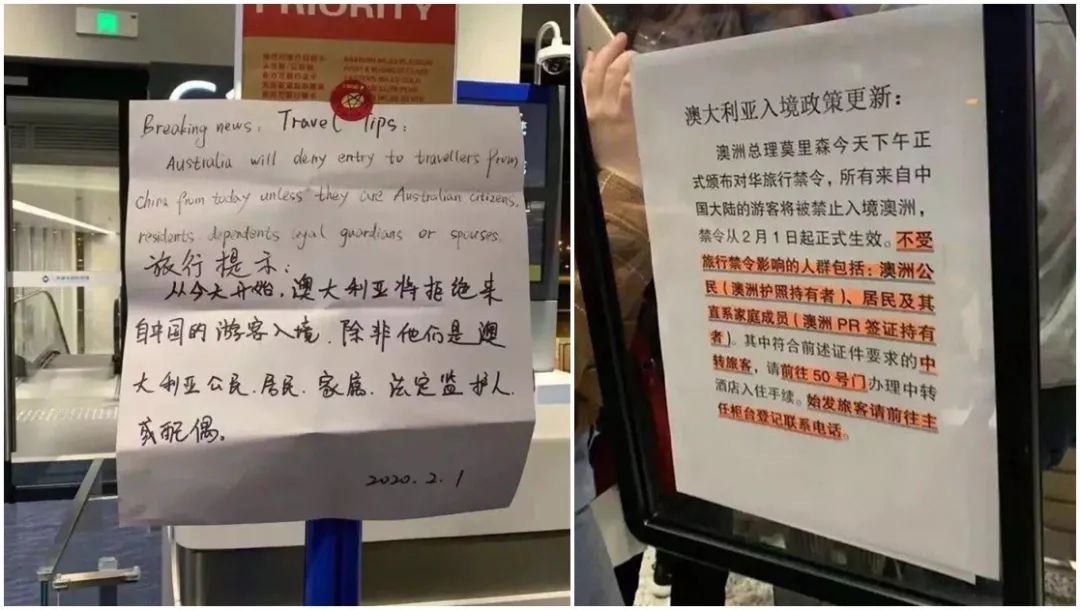 PRIORITY
Breaking news: Travel Tips:
Australia will deny entry to travellers from
china from today unless they are Australian citizens,
residents, dependents legal guardians or spouses.
旅行提示:
从今天开始,澳大利亚将拒绝来
自中国的游客入境,除非他们是澳
大利亚公民、居民、家属、法定监护人、
或配偶。
2020.2.1
澳大利亚入境政策更新:
澳洲总理莫里森今天下午正
式颁布对华旅行禁令,所有来自中
国大陆的游客将被禁止入境澳洲,
禁令从2月1日起正式生效。不受
旅行禁令影响的人群包括:澳洲公
民(澳洲护照持有者)、居民及其
直系家庭成员(澳洲 PR 签证持有
者)。其中符合前述证件要求的中
转旅客,请前往 50 号门办理中转
酒店入住手续。始发旅客请前往主
任柜台登记联系电话。